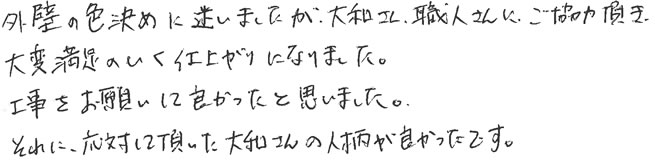 外壁の色決めに迷いましたが、大和さん、職人さんに、ご協力頂き、
大変満足のいく仕上がりになりました。
工事をお願いして良かったと思いました。
それに、応対して頂いた大和さんの人柄が良かったです。